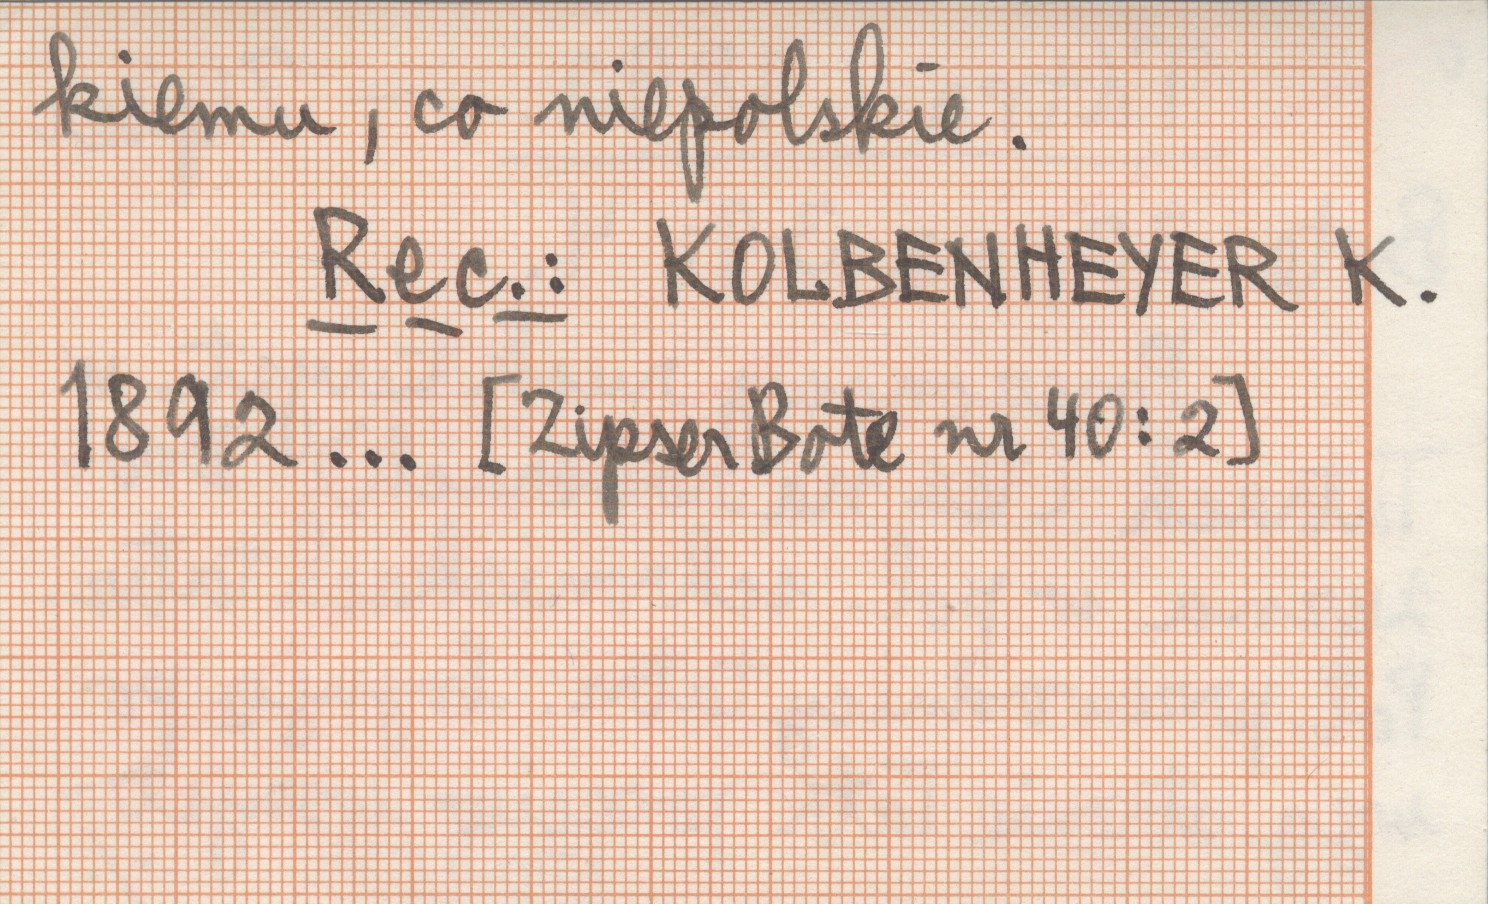 kiemu, co niepolskie.
Rec.: KOLBENHEYER K.
1892... [Zipser Bote nr 40:2]